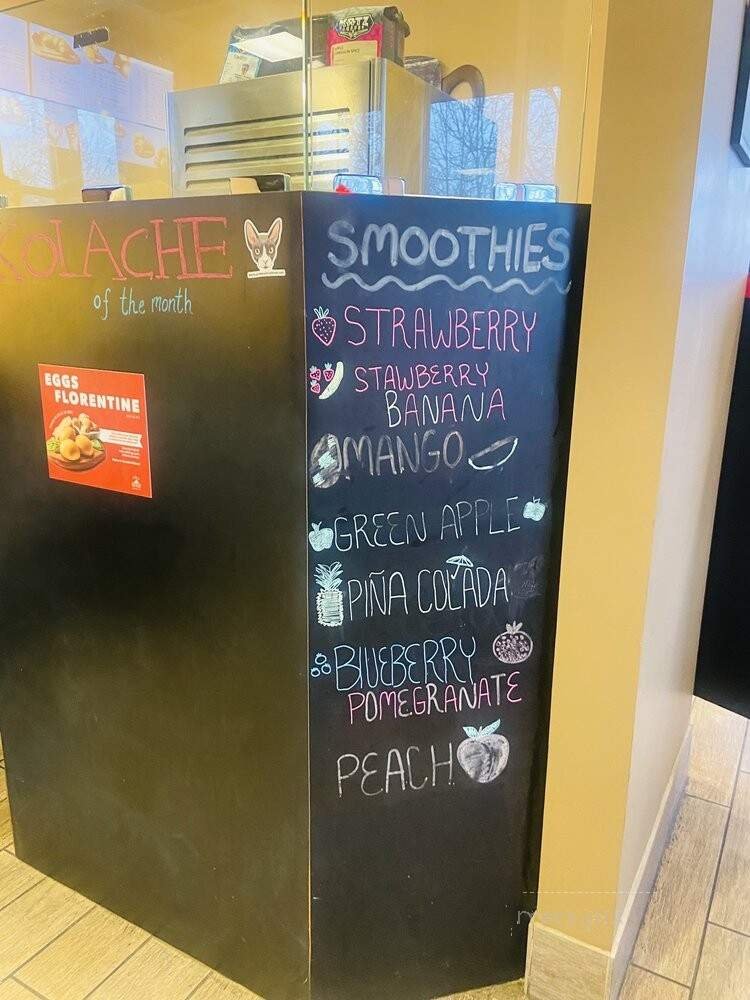 KATZ
KOLACHE
of the month
EGGS
FLORENTINE
SMOOTHIES
STRAWBERRY
STAWBERRY
BANANA
MANGO
GREEN APPLE
PIÑA COLADA
BLUEBERRY
POMEGRANATE
PEACH